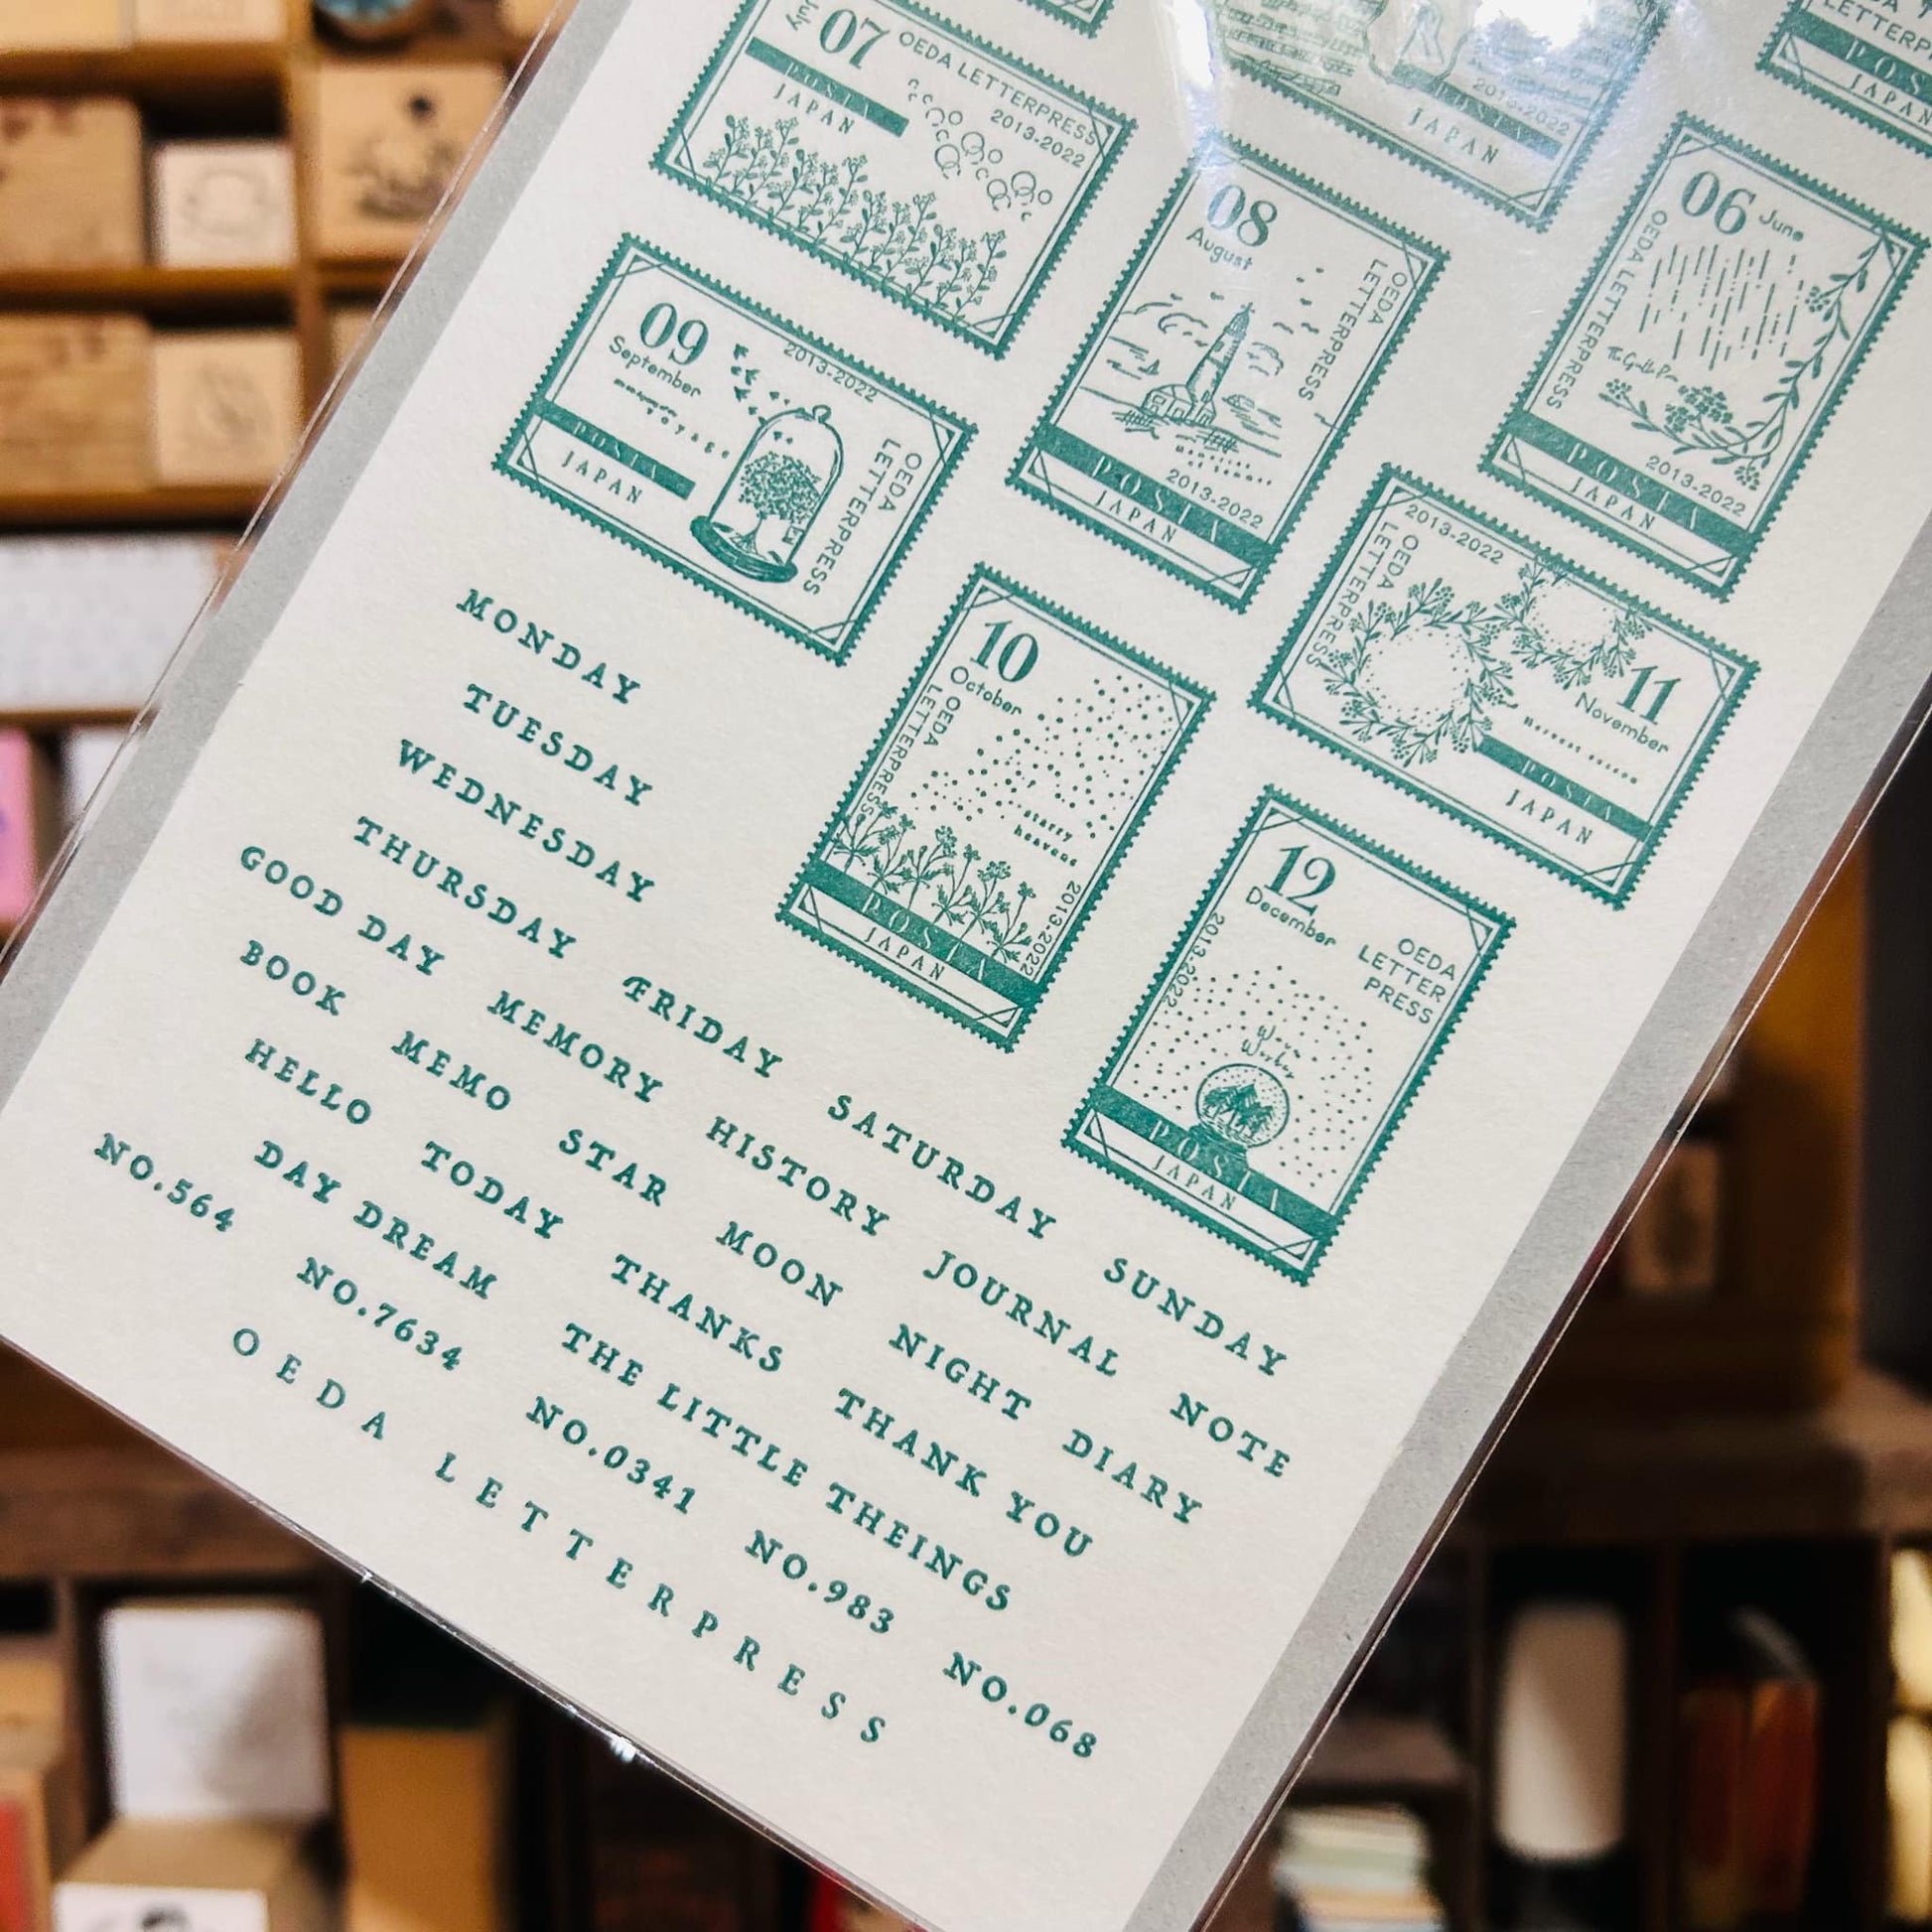 07
July
OEDA LETTERPRESS
2013-2022
POSTA
JAPAN
2013-2022
POSTA
JAPAN
LETTERPRESS
POSTA
JAPAN
06 June
OEDA LETTERPRESS
POSTA
2013-2022
JAPAN
08
August
OEDA
LETTERPRESS
2013-2022
POSTA
JAPAN
09
September
2013-2022
VOYAGE
OEDA
LETTERPRESS
POSTA
JAPAN
10
October
OEDA
LETTERPRESS
starry
heavens
2013-2022
POSTA
JAPAN
2013-2022
OEDA
LETTERPRESS
11
November
POSTA
JAPAN
12
December
2013-2022
OEDA
LETTER
PRESS
Warm
Wishes
POSTA
JAPAN
MONDAY
TUESDAY
WEDNESDAY
THURSDAY FRIDAY SATURDAY SUNDAY
GOOD DAY MEMORY HISTORY JOURNAL NOTE
BOOK MEMO STAR MOON NIGHT DIARY
HELLO TODAY THANKS THANK YOU
DAY DREAM THE LITTLE THEINGS
NO.564 NO.7634 NO.0341 NO.983 NO.068
OEDA LETTERPRESS